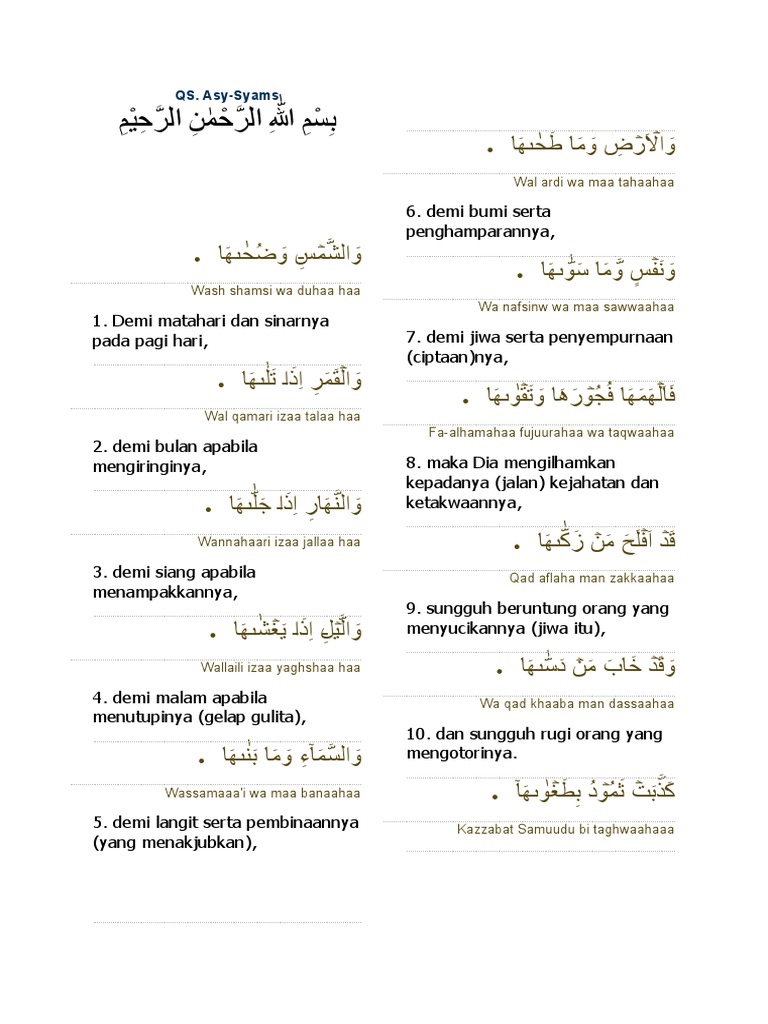 QS. Asy-Syams
بِسْمِ اللّٰهِ الرَّحْمٰنِ الرَّحِيْمِ
وَالشَّمْسِ وَضُحٰىهَا .
Wash shamsi wa duhaa haa
1. Demi matahari dan sinarnya
pada pagi hari,
وَالْقَمَرِ اِذَا تَلٰىهَا .
Wal qamari izaa talaa haa
2. demi bulan apabila
mengiringinya,
وَالنَّهَارِ اِذَا جَلّٰىهَا .
Wannahaari izaa jallaa haa
3. demi siang apabila
menampakkannya,
وَالَّيْلِ اِذَا يَغْشٰىهَا .
Wallaili izaa yaghshaa haa
4. demi malam apabila
menutupinya (gelap gulita),
وَالسَّمَاۤءِ وَمَا بَنٰىهَا .
Wassamaaa'i wa maa banaahaa
5. demi langit serta pembinaannya
(yang menakjubkan),
وَالْاَرْضِ وَمَا طَحٰىهَا .
Wal ardi wa maa tahaahaa
6. demi bumi serta
penghamparannya,
وَنَفْسٍ وَّمَا سَوّٰىهَا .
Wa nafsinw wa maa sawwaahaa
7. demi jiwa serta penyempurnaan
(ciptaan)nya,
فَاَلْهَمَهَا فُجُوْرَهَا وَتَقْوٰىهَا .
Fa-alhamahaa fujuurahaa wa taqwaahaa
8. maka Dia mengilhamkan
kepadanya (jalan) kejahatan dan
ketakwaannya,
قَدْ اَفْلَحَ مَنْ زَكّٰىهَا .
Qad aflaha man zakkaahaa
9. sungguh beruntung orang yang
menyucikannya (jiwa itu),
وَقَدْ خَابَ مَنْ دَسّٰىهَا .
Wa qad khaaba man dassaahaa
10. dan sungguh rugi orang yang
mengotorinya.
كَذَّبَتْ ثَمُوْدُ بِطَغْوٰىهَآ .
Kazzabat Samuudu bi taghwaahaaa